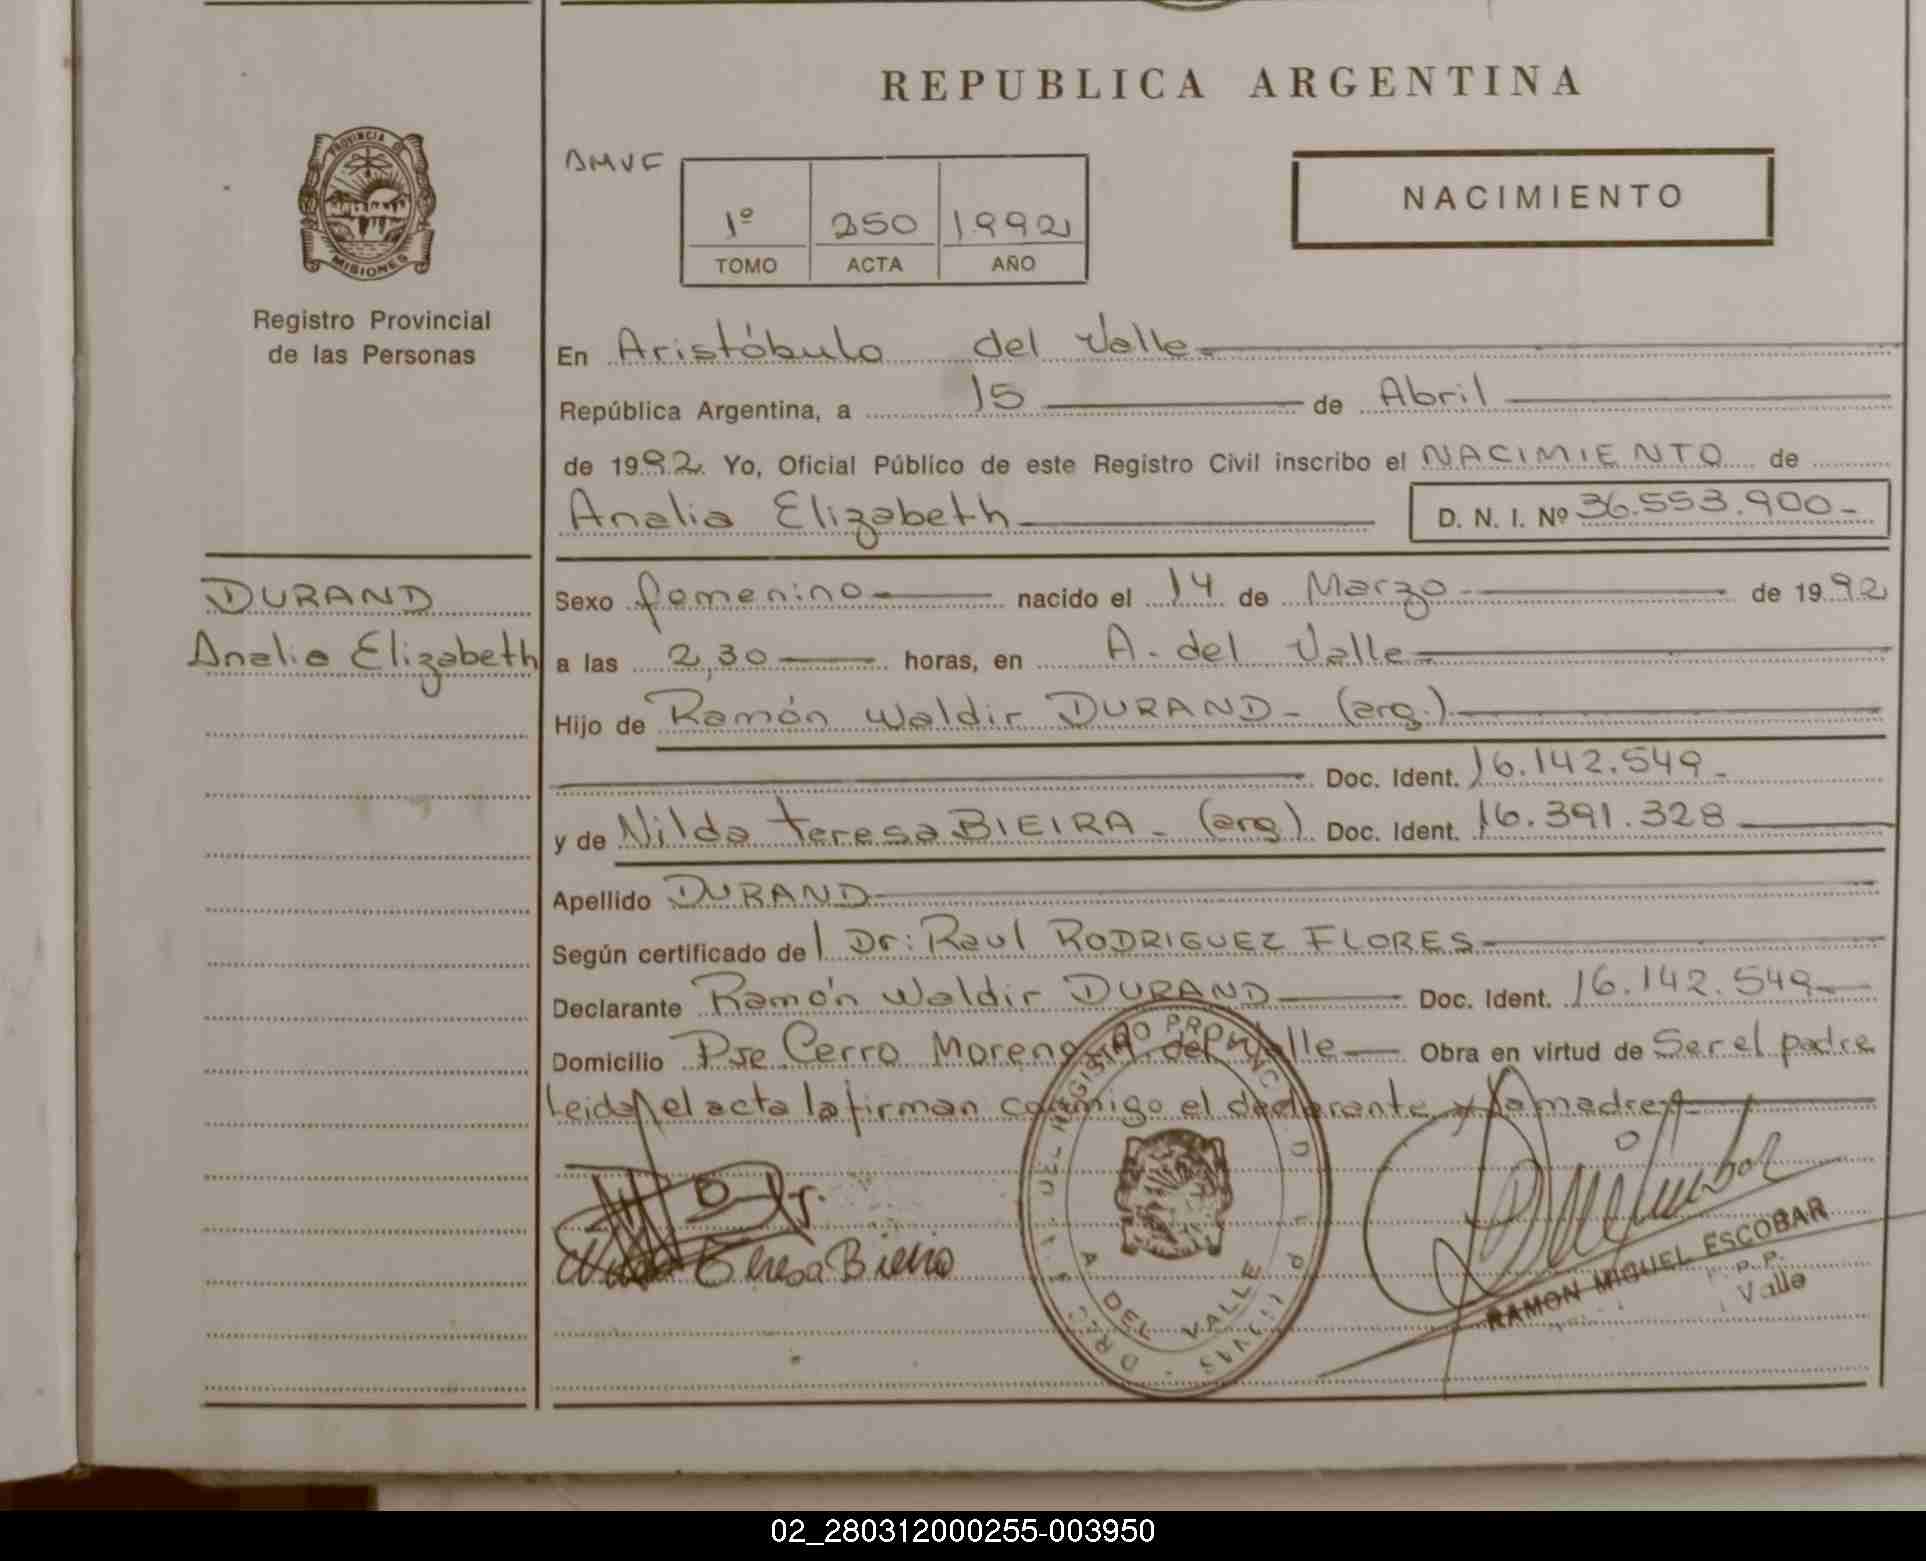 REPUBLICA ARGENTINA
PROVINCIA D
MISIONES
Registro Provincial
de las Personas
1º 250 1992
TOMO ACTA AÑO
NACIMIENTO
En Aristóbulo del Valle
República Argentina, a 15 de Abril
de 1992. Yo, Oficial Público de este Registro Civil inscribo el NACIMIENTO de
Analia Elizabeth D. N. I. Nº 36.553.900-
DURAND
Analia Elizabeth
Sexo femenino nacido el 14 de Marzo de 1992
a las 2,30 horas, en A. del Valle
Hijo de Ramón Waldir DURAND- (arg.)
Doc. Ident. 16.142.549-
y de Nilda Teresa BIEIRA- (arg) Doc. Ident. 16.391.328
Apellido DURAND
Según certificado de l Dr: Raul RODRIGUEZ FLORES
Declarante Ramón Waldir DURAND Doc. Ident. 16.142.549
Domicilio Pje Cerro Moreno A. del Valle Obra en virtud de Ser el padre
Leida el acta la firman conmigo el declarante y la madre
Teresa Bieira
A DEL VALLE
RAMON MIGUEL ESCOBAR
Valle
02_280312000255-003950